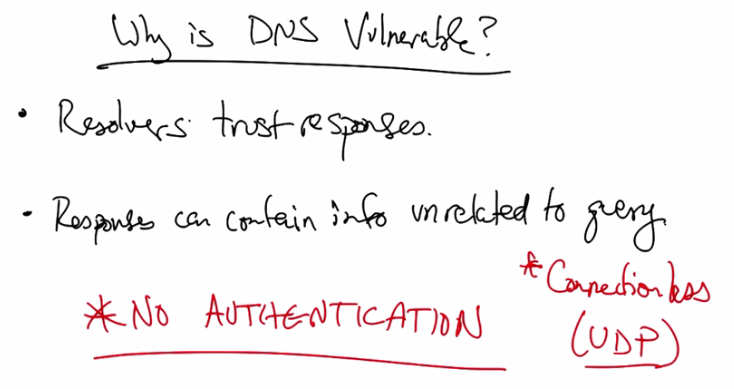 Why is DNS Vulnerable?
• Resolvers trust responses.
• Responses can contain info unrelated to query
* NO AUTHENTICATION
* Connectionless
(UDP)